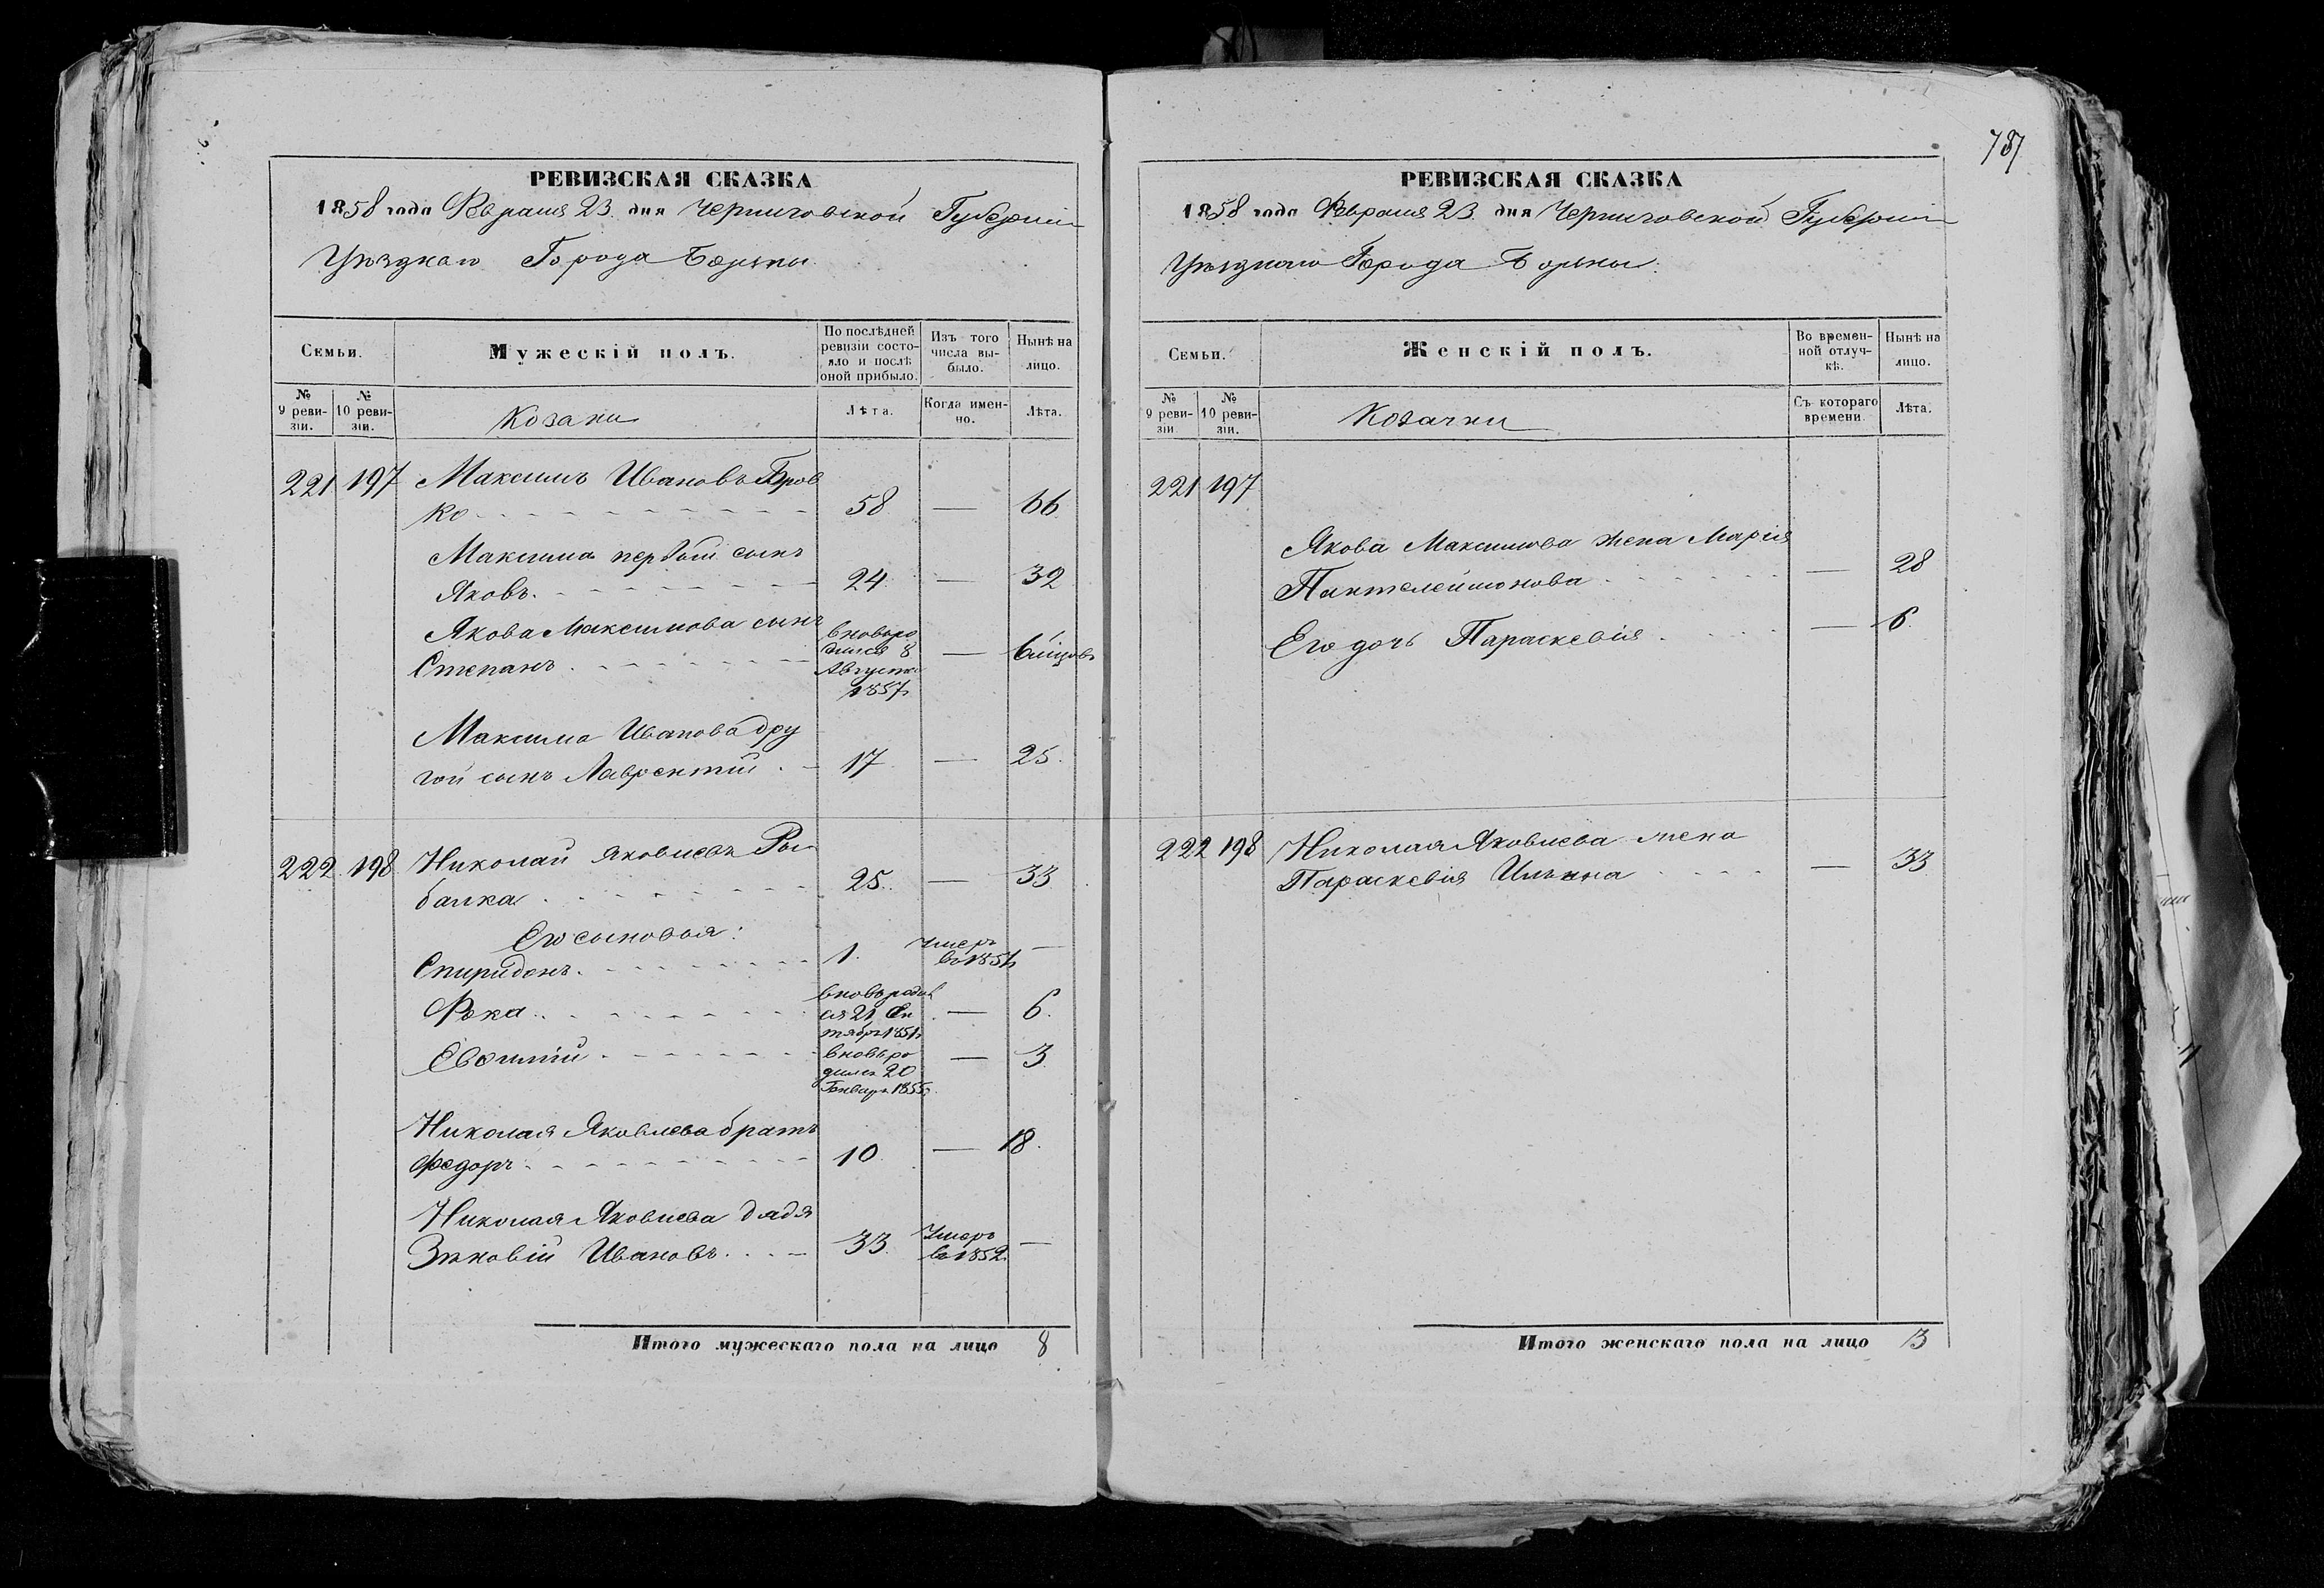 787
РЕВИЗСКАЯ СКАЗКА
1858 года Февраля 23 дня Черниговской Губерніи
Уѣзднаго Города Борзны
Семьи.
Мужескій полъ.
По послѣдней ревизіи состояло и послѣ оной прибыло.
Изъ того числа выбыло.
Нынѣ на лицо.
№ 9 ревизіи.
№ 10 ревизіи.
Козаки
Лѣта.
Когда именно.
Лѣта.
221 197 Максимъ Ивановъ
ко 58 — 66
Максима первый сынъ
Яковъ 24 — 32
Якова Максимова сынъ
Степанъ вновь родился 8 Августа 1857 — 6 мѣцовъ
Максима Иванова дру
гой сынъ Лаврентий 17 — 25
222 198 Николай Яковлевъ Ры
балка 25 — 33
Его сыновья:
Спиридонъ 1 Умеръ въ 1851 —
Фока вновь родил ся 21 Сентябр 1851 — 6
Евфимій вновь родился 20 Январ 1855 — 3
Николая Яковлева братъ
Федоръ 10 — 18
Николая Яковлева дядя
Зѣновій Ивановъ 33 Умеръ въ 1852 —
Итого мужескаго пола на лицо 8
РЕВИЗСКАЯ СКАЗКА
1858 года Февраля 23 дня Черниговской Губерніи
Уѣзднаго Города Борзны
Семьи.
Женскій полъ.
Во временной отлучкѣ.
Нынѣ на лицо.
№ 9 ревизіи
№ 10 ревизіи.
Козачки
Съ котораго времени.
Лѣта.
221 197
Якова Максимова жена Марія
Пантелеймонова — 28
Его дочь Параскевія — 6
222 198 Николая Яковлева жена
Параскевія Ильина — 33
Итого женскаго пола на лицо 3